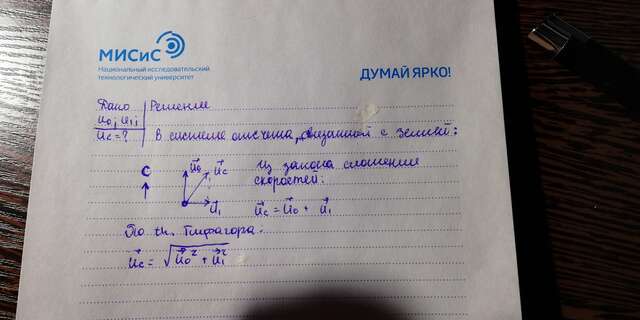 МИСиС
Национальный исследовательский
технологический университет
ДУМАЙ ЯРКО!
Дано Решение
u₀; u₁;
uc = ? В системе отсчета, связанной с Землей:
С u⃗₀ u⃗c Из закона сложения
скоростей:
u⃗₁ u⃗c = u⃗₀ + u⃗₁
По т. Пифагора:
u⃗c = √(u⃗₀² + u⃗₁²)